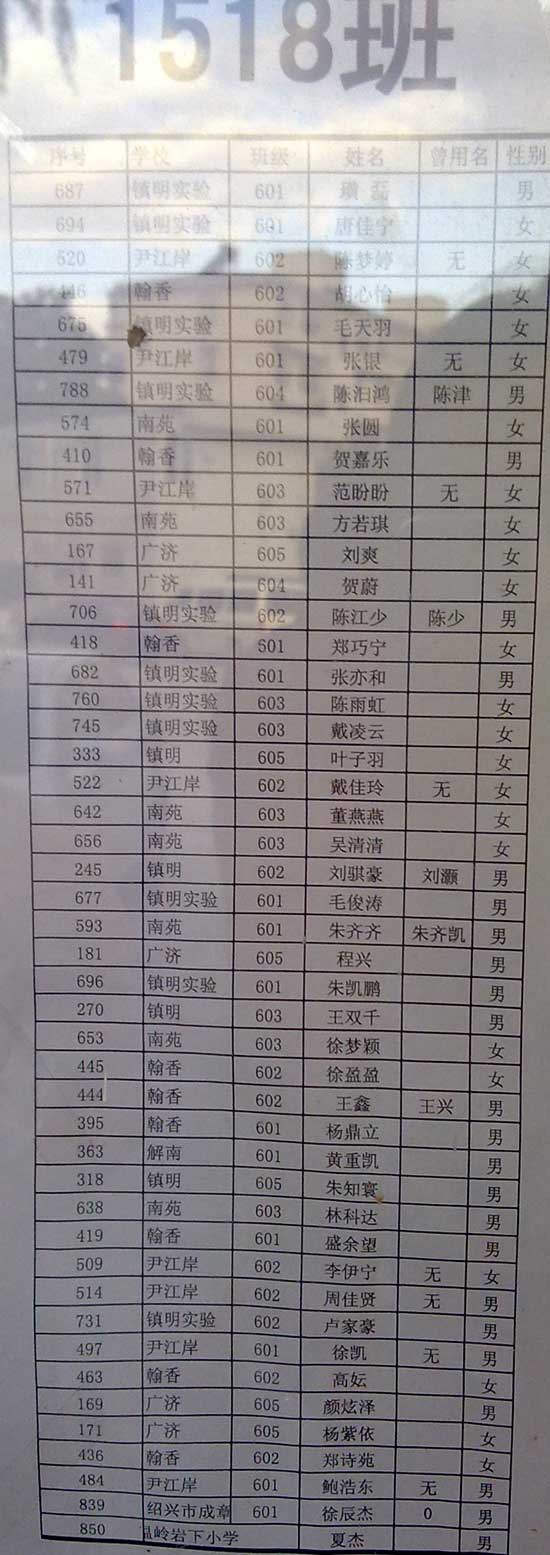 1518班
序号 学校 班级 姓名 曾用名 性别
687 镇明实验 601 磊 男
694 镇明实验 601 唐佳宁 女
520 尹江岸 602 陈梦婷 无 女
446 翰香 602 胡心怡 女
675 镇明实验 601 毛天羽 女
479 尹江岸 601 张银 无 女
788 镇明实验 604 陈汩鸿 陈津 男
574 南苑 601 张圆 女
410 翰香 601 贺嘉乐 男
571 尹江岸 603 范盼盼 无 女
655 南苑 603 方若琪 女
167 广济 605 刘爽 女
141 广济 604 贺蔚 女
706 镇明实验 602 陈江少 陈少 男
418 翰香 601 郑巧宁 女
682 镇明实验 601 张亦和 男
760 镇明实验 603 陈雨虹 女
745 镇明实验 603 戴凌云 女
333 镇明 605 叶子羽 女
522 尹江岸 602 戴佳玲 无 女
642 南苑 603 董燕燕 女
656 南苑 603 吴清清 女
245 镇明 602 刘骐豪 刘灏 男
677 镇明实验 601 毛俊涛 男
593 南苑 601 朱齐齐 朱齐凯 男
181 广济 605 程兴 男
696 镇明实验 601 朱凯鹏 男
270 镇明 603 王双千 男
653 南苑 603 徐梦颖 女
445 翰香 602 徐盈盈 女
444 翰香 602 王鑫 王兴 男
395 翰香 601 杨鼎立 男
363 解南 601 黄重凯 男
318 镇明 605 朱知寰 男
638 南苑 603 林科达 男
419 翰香 601 盛余望 男
509 尹江岸 602 李伊宁 无 女
514 尹江岸 602 周佳贤 无 男
731 镇明实验 602 卢家豪 男
497 尹江岸 601 徐凯 无 男
463 翰香 602 高妘 女
169 广济 605 颜炫泽 男
171 广济 605 杨紫依 女
436 翰香 602 郑诗苑 女
484 尹江岸 601 鲍浩东 无 男
839 绍兴市成章 601 徐辰杰 0 男
850 温岭岩下小学 夏杰 男